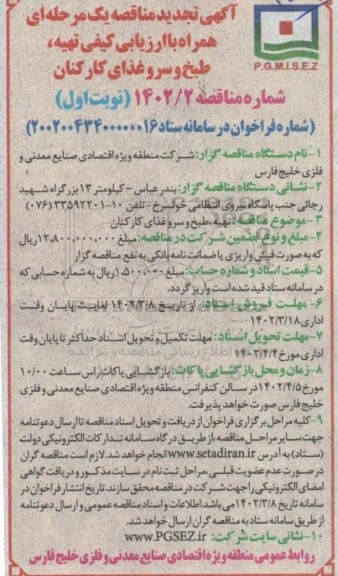 آگهی تجدید مناقصه یک مرحله‌ای
همراه با ارزیابی کیفی تهیه،
طبخ و سرو غذای کارکنان
P.G.M.I.S.E.Z
شماره مناقصه ۱۴۰۲/۲ (نوبت اول)
(شماره فراخوان در سامانه ستاد ۲۰۰۲۰۰۴۳۴۰۰۰۰۰۱۶)
۱-نام دستگاه مناقصه گزار: شرکت منطقه ویژه اقتصادی صنایع معدنی و
فلزی خلیج فارس
۲- نشانی دستگاه مناقصه گزار: بندرعباس - کیلومتر ۱۳ بزرگراه شهید
رجائی جنب پاسگاه نیروی انتظامی خونسرخ - تلفن ۱۰-۳۳۵۹۲۲۰۱ (۰۷۶)
۳- موضوع مناقصه: تهیه،طبخ و سرو غذای کارکنان
۴- مبلغ و نوع تضمین شرکت در مناقصه: مبلغ ۱۲,۸۰۰,۰۰۰,۰۰۰ ریال
که به صورت فیش واریزی یا ضمانت نامه بانکی به نفع مناقصه گزار
۵- قیمت اسناد و شماره حساب: مبلغ ۱,۵۰۰,۰۰۰ ریال به شماره حسابی که
در سامانه ستاد قید شده است واریز گردد.
۶- مهلت فروش اسناد: از تاریخ ۱۴۰۲/۳/۸ لغایت پایان وقت
اداری ۱۴۰۲/۳/۱۸
۷- مهلت تحویل اسناد: مهلت تکمیل و تحویل اسناد حداکثر تا پایان وقت
اداری مورخ ۱۴۰۲/۴/۴
۸- زمان و محل بازگشایی پاکات: بازگشایی پاکات راس ساعت ۱۰/۰۰
مورخ ۱۴۰۲/۴/۵ در سالن کنفرانس منطقه ویژه اقتصادی صنایع معدنی و فلزی
خلیج فارس صورت خواهد پذیرفت.
۹- کلیه مراحل برگزاری فراخوان از دریافت و تحویل اسناد مناقصه تا ارسال دعوتنامه
جهت سایر مراحل مناقصه از طریق درگاه سامانه تدارکات الکترونیکی دولت
(ستاد) به آدرس www.setadiran.ir انجام خواهد شد. لازم است مناقصه گران
در صورت عدم عضویت قبلی ،مراحل ثبت نام در سایت مذکور و دریافت گواهی
امضای الکترونیکی را جهت شرکت در مناقصه محقق سازند. تاریخ انتشار فراخوان در
سامانه تاریخ ۱۴۰۲/۳/۸ می باشد اطلاعات و اسناد مناقصه عمومی و ارسال دعوتنامه
از طریق سامانه ستاد به مناقصه گران ارسال خواهد شد.
۱۰- نشانی سایت شرکت: www.PGSEZ.ir
روابط عمومی منطقه ویژه اقتصادی صنایع معدنی و فلزی خلیج فارس